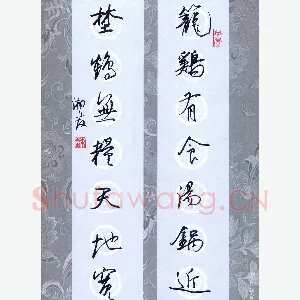 籠鷄有食湯鍋近
埜鶴無糧天地寬
Shufawang.CN